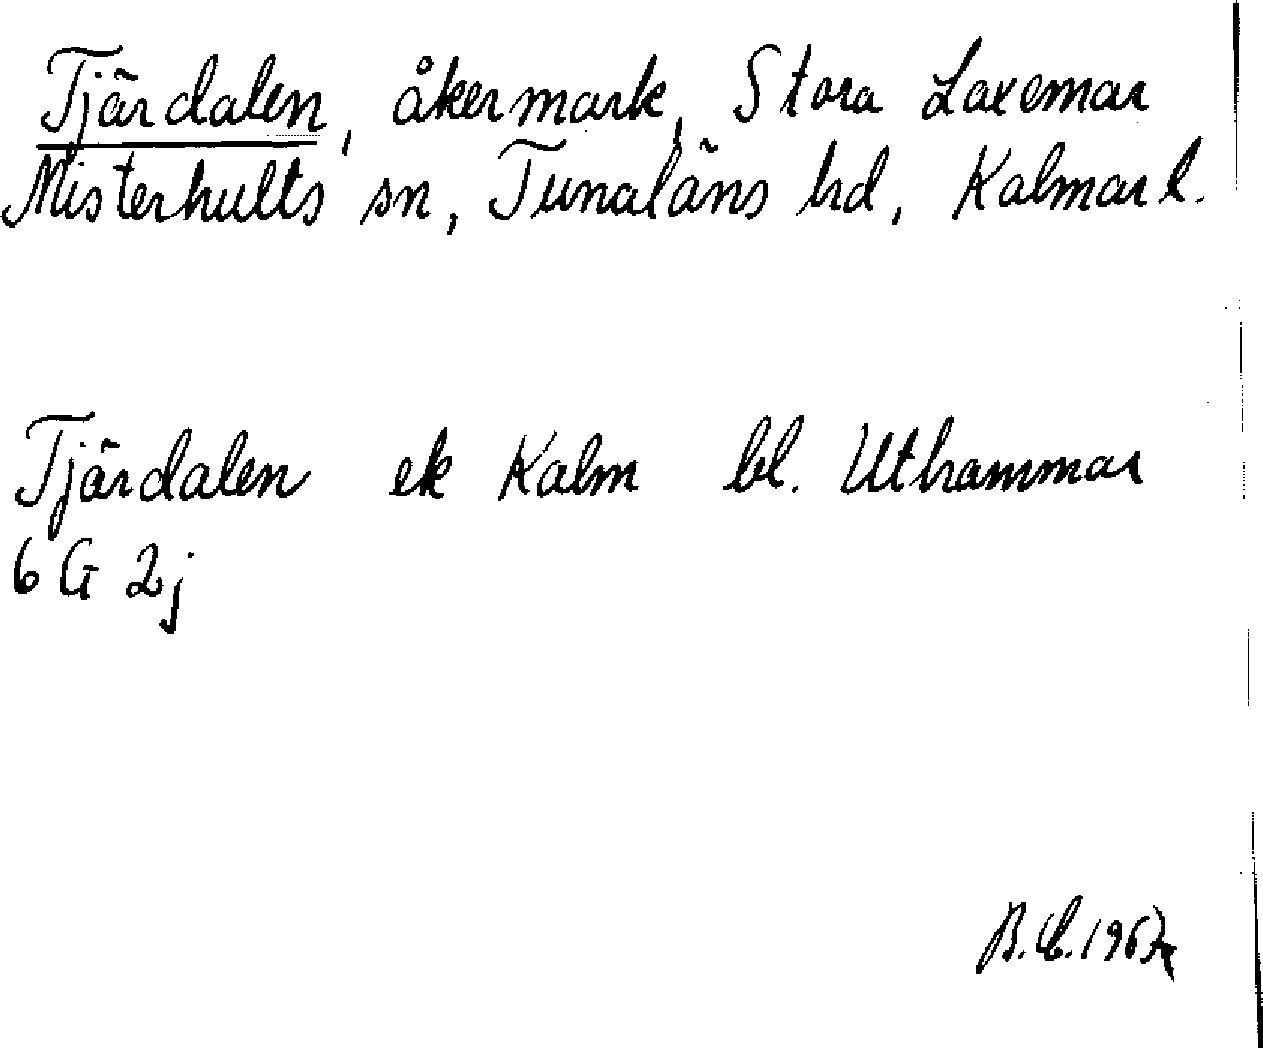 Tjärdalen, åkermark, Stora Laxemar
Misterhults sn, Tunaläns hd, Kalmar l.
Tjärdalen ek Kalm bl. Uthammar
6 G 2j
B.E. 1967